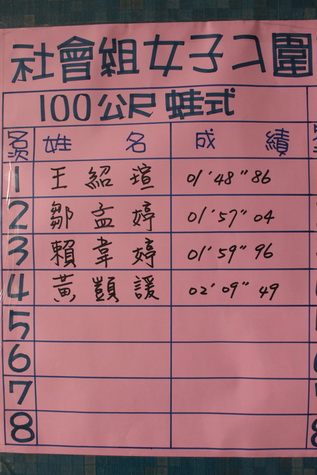 社會組女子入圍
100公尺 蛙式
名次 姓 名 成 績
1 王紹瑄 01'48"86
2 鄒孟婷 01'57"04
3 賴韋婷 01'59"96
4 黃顗諼 02'09"49
5
6
7
8